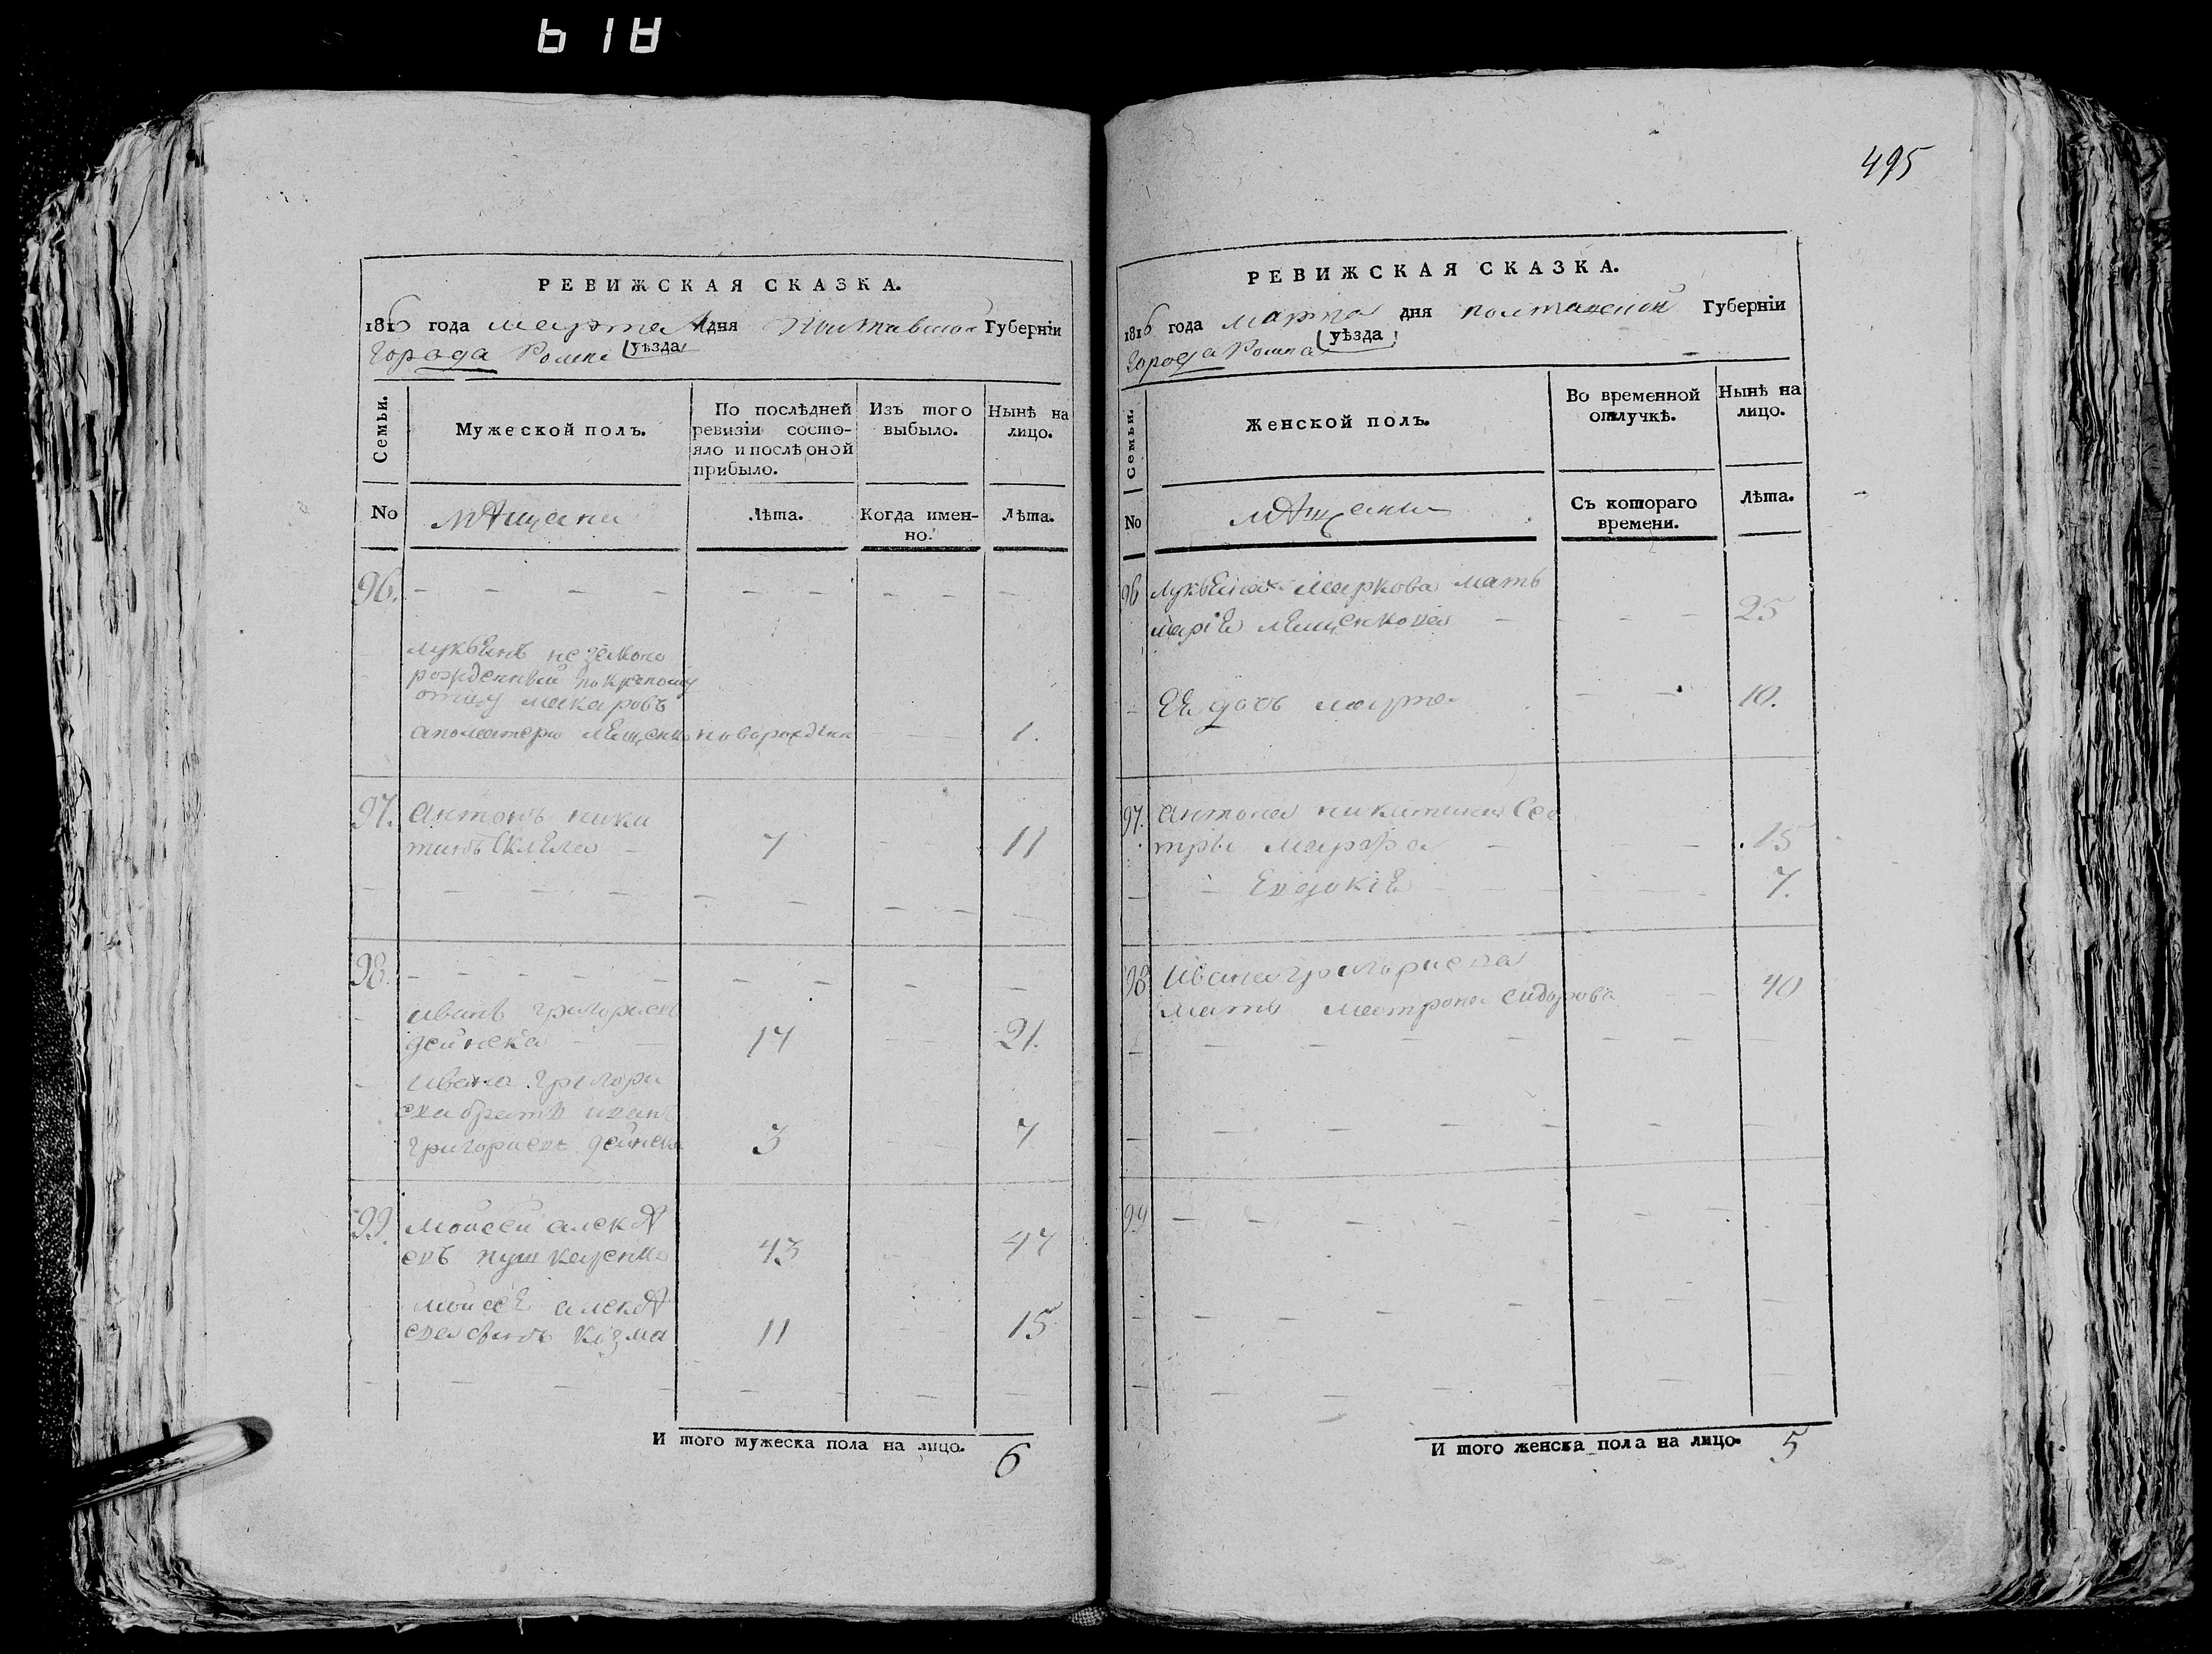 618
495
РЕВИЖСКАЯ СКАЗКА.
1816 года марта дня Полтавской Губерніи
Города Ромна уѣзда
Семьи.
Мужеской полъ.
По послѣдней ревизіи состояло и послѣ оной прибыло.
Изъ того выбыло.
Нынѣ на лицо.
No
мѣщани
Лѣта.
Когда именно.
Лѣта.
96.
незаконо
рожденный по крестному
отцу макаровъ
апоматери новорожден 1.
97. Антонъ ники
тинъ 7 11
98.
иванъ григориевъ
дейнека 14 21.
ивана григори
ева братъ иванъ
григориевъ дейнека 3 7
99. Мойсей алекѣ
евъ пушкаренко 43 47
мойсея алекѣ
ева сынъ козма 11 15
И того мужеска пола на лицо. 6
РЕВИЖСКАЯ СКАЗКА.
1816 года марта дня полтавской Губерніи
Города Ромна уѣзда
Семьи.
Женской полъ.
Во временной отлучкѣ.
Нынѣ на лицо.
No
мѣщанки
Съ котораго времени.
Лѣта.
96 маркова мать
25
Ея дочь марта 10.
97. Антона никитина сес
тры марфа 15
Евдокія 7.
98 Ивана григориева
мать матрона сидорова 40
99
И того женска пола на лицо. 5